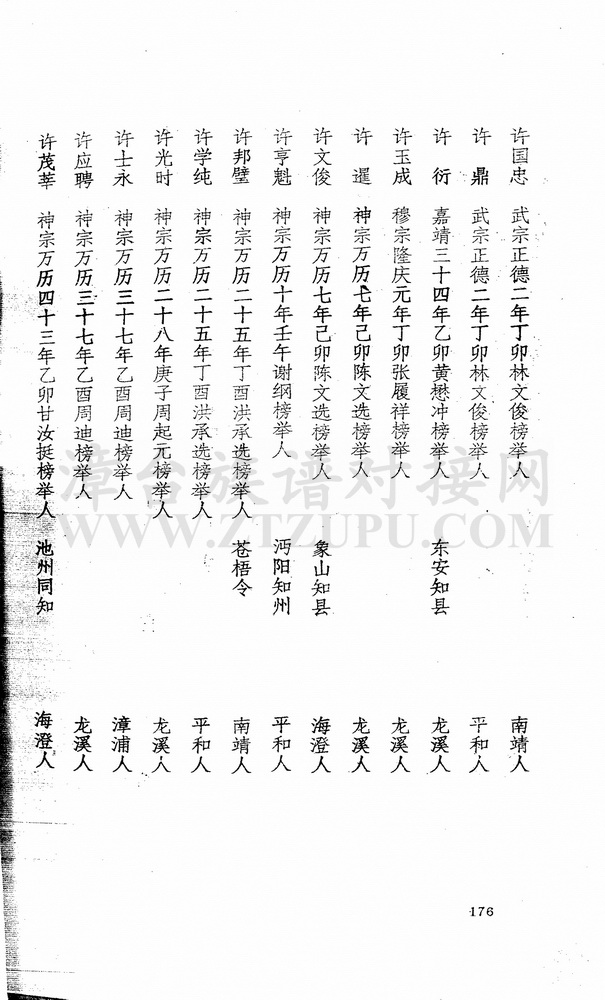 许国忠 武宗正德二年丁卯林文俊榜举人 南靖人
许鼎 武宗正德二年丁卯林文俊榜举人 平和人
许衍 嘉靖三十四年乙卯黄懋冲榜举人 东安知县 龙溪人
许玉成 穆宗隆庆元年丁卯张履祥榜举人 龙溪人
许暹 神宗万历七年己卯陈文选榜举人 龙溪人
许文俊 神宗万历七年己卯陈文选榜举人 象山知县 海澄人
许亨魁 神宗万历十年壬午谢纲榜举人 沔阳知州 平和人
许邦璧 神宗万历二十五年丁酉洪承选榜举人 苍梧令 南靖人
许学纯 神宗万历二十五年丁酉洪承选榜举人 平和人
许光时 神宗万历二十八年庚子周起元榜举人 龙溪人
许士永 神宗万历三十七年乙酉周迪榜举人 漳浦人
许应聘 神宗万历三十七年乙酉周迪榜举人 龙溪人
许茂莘 神宗万历四十三年乙卯甘汝挺榜举人 池州同知 海澄人
176
漳台族谱对接网
WWW.ZTZUPU.COM